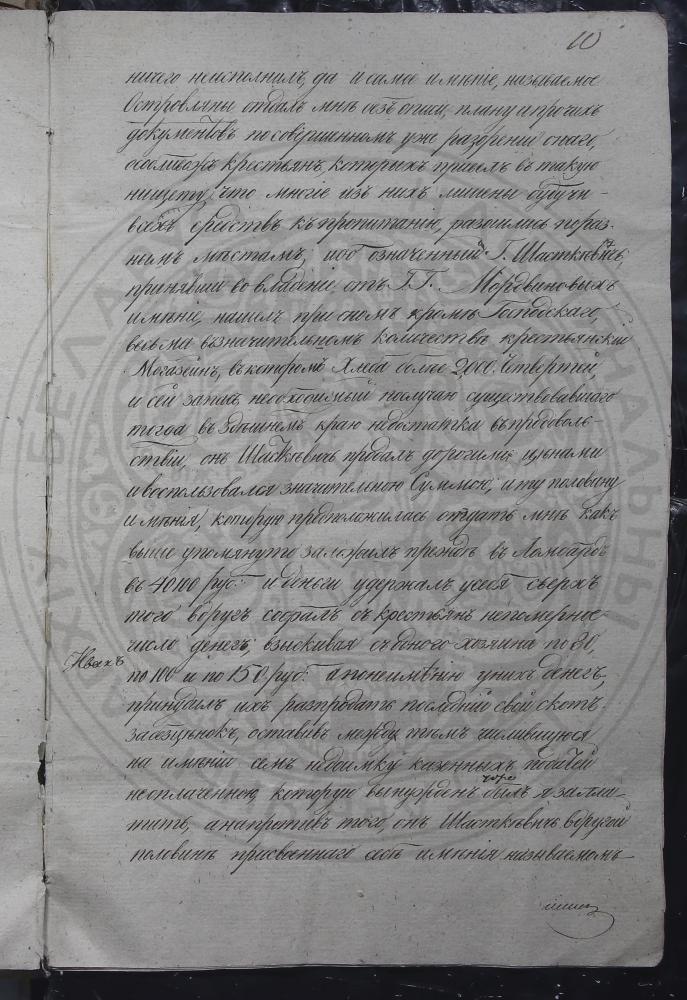 10
ничего неисполнилъ, да и самое имѣніе, называемое
Островляны отдалъ мнѣ безъ описи, плану и прочихъ
документовъ по совершенномъ уже разореніи онаго,
особливожъ крестьянъ, которыхъ привелъ въ такую
нищету, что многіе изъ нихъ лишены будучи
всѣхъ средствъ къ пропитанію, разошлись по раз-
нымъ мѣстамъ, ибо означенный Г. Шасткѣвичь,
принявши во владѣніе отъ Г.Г. Мордвиновыхъ
имѣніе, нашелъ при ономъ кромѣ Господскаго,
весьма въ значительномъ количествѣ крестьянскій
Могазейнъ, въ которомъ хлѣба более 2,000. Четвертей,
и сей запасъ необходимый по случаю существовавшаго
тогда въ здѣшнемъ краю недостатка въ продоволь-
ствіи, онъ Шасткѣвичь продалъ дорогими цѣнами
и воспользовался значительною Суммою, и ту половину
имѣнія, которую предположилась отдать мнѣ какъ
выше упомянуто заложилъ прежде въ Ломбардъ
въ 4000 руб: и деньги удержалъ у себя сверхъ
того вдругъ собралъ съ крестьянъ непомерное
число денегъ, взыскивая съ одного хозяина по 80,
по 100 и по 150 руб: а понеимѣнію у нихъ денегъ,
принудилъ ихъ разпродать последній свой скотъ
за безцѣнокъ, оставивъ между тѣмъ числившуюся
на имѣніи семъ недоимку казенныхъ податей
неоплаченною, которую вынужденъ былъ я запла-
тить, а напротивъ того, онъ Шасткѣвичь в другой
половинѣ присвоеннаго себѣ имѣнія называемомъ